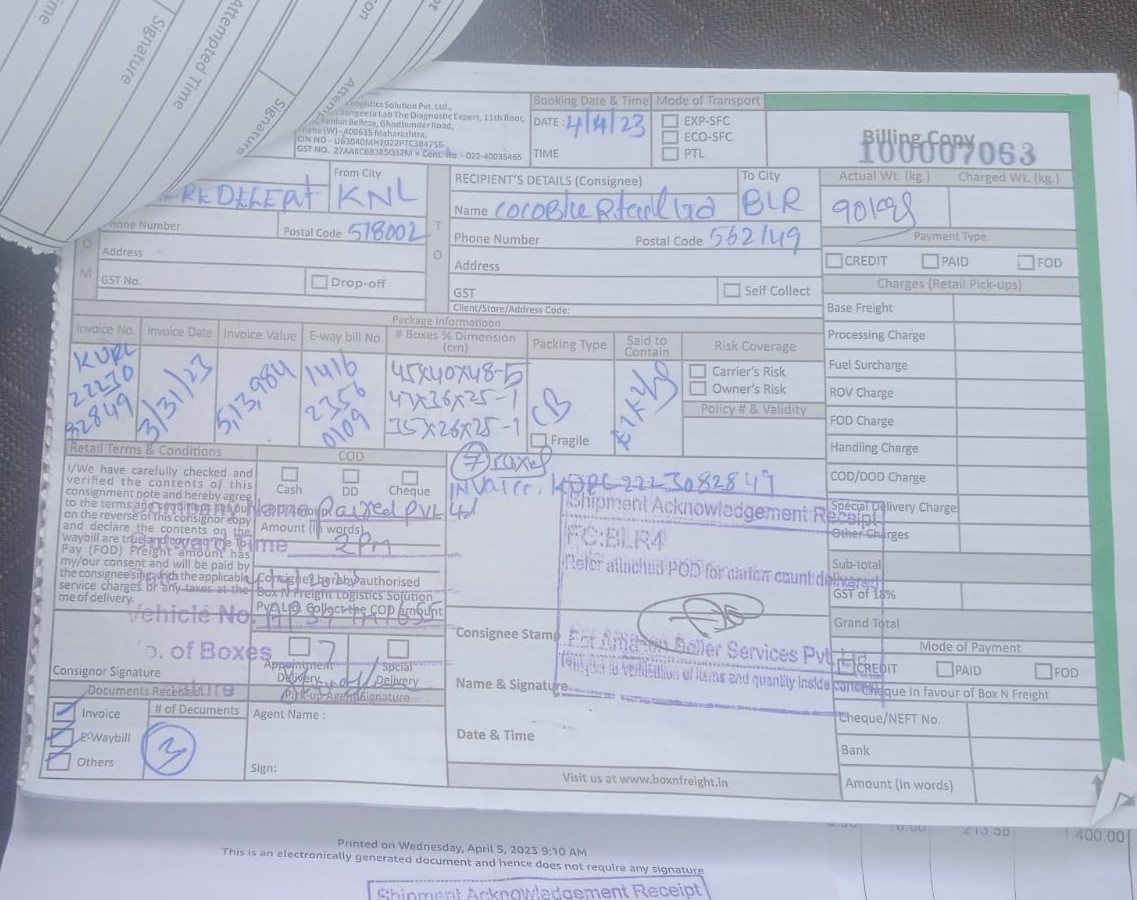 Signature
Attempted Time
Signature
Logistics Solution Pvt. Ltd.,
Sangeeta Lab The Diagnostic Expert, 11th floor,
Belleza, Ghodbunder Road,
Phone (W) -400615 Maharashtra,
CIN NO - U63040MH2022PTC384756
GST NO. 27AAKCB8385Q1ZM • Cont. No. -022-40035465
Booking Date & Time
DATE: 4/4/23
TIME
Mode of Transport
EXP-SFC
ECO-SFC
PTL
Billing Copy
100007063
From City
KNL
Phone Number
Postal Code 518002
Address
GST No.
Drop-off
M
T
O
RECIPIENT'S DETAILS (Consignee)
To City
Name
BLR
Phone Number
Postal Code 562149
Address
GST
Self Collect
Client/Store/Address Code:
Actual Wt. (kg.)
Charged Wt. (kg.)
90kgs
Payment Type
CREDIT
PAID
FOD
Charges (Retail Pick-ups)
Base Freight
Processing Charge
Fuel Surcharge
ROV Charge
FOD Charge
Handling Charge
COD/DOD Charge
Special Delivery Charge
Other Charges
Sub-total
GST of 18%
Grand Total
Mode of Payment
CREDIT
PAID
FOD
Cheque In favour of Box N Freight
Cheque/NEFT No.
Bank
Amount (In words)
Package Informatioon
Invoice No.
Invoice Date
Invoice Value
E-way bill No.
# Boxes % Dimension (cm)
Packing Type
Said to Contain
Risk Coverage
22230
82849
3/31/23
513,984
1416
2356
0109
45x40x48-5
47x36x25-1
35x26x25-1
CB
Fragile
Carrier's Risk
Owner's Risk
Policy # & Validity
Retail Terms & Conditions
I/We have carefully checked and
verified the contents of this
consignment note and hereby agree
to the terms
on the reverse of this consignor copy
and declare the contents on the
waybill are true and
Pay (FOD) Freight amount has
my/our consent and will be paid by
the consignee with the applicable
service charges or any taxor at the
me of delivery.
COD
Cash
DD
Cheque
Amount (In words)
authorised
Box N Freight Logistics Solution
Collect the COD Amount
Company Name
Time 2Pm
Vehicle No.
of Boxes 7
Appointment Delivery
Spcial Delivery
Consignor Signature
Documents Received
Invoice
E-Waybill
Others
# of Documents
3
Agent Name :
Sign:
7 Boxes
2223082849
Shipment Acknowledgement Receipt
FC:BLR4
Refer attached POD for carton count delivered
Consignee Stamp
For Amazon Seller Services Pvt Ltd
verification of items and quantity inside
Name & Signature
Date & Time
Visit us at www.boxnfreight.in
400.00
Printed on Wednesday, April 5, 2023 9:10 AM
This is an electronically generated document and hence does not require any signature
Shipment Acknowledgement Receipt